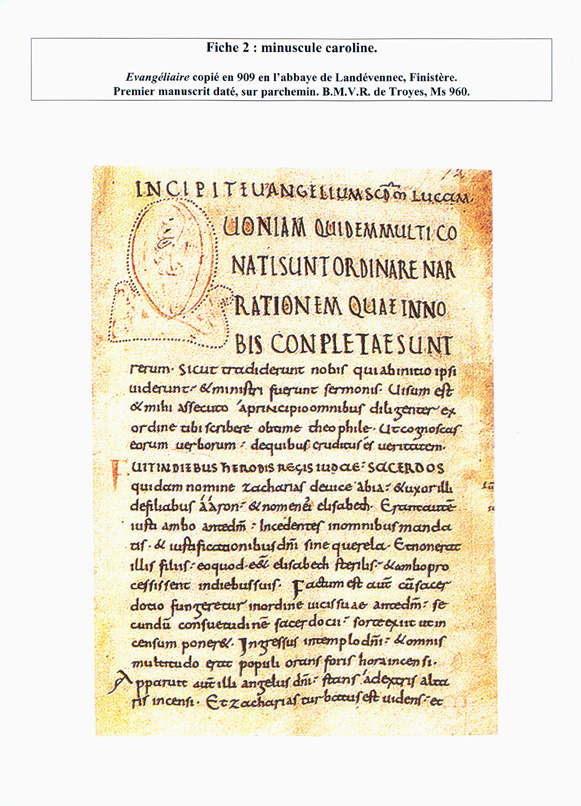 Fiche 2 : minuscule caroline.
Evangéliaire copié en 909 en l'abbaye de Landévennec, Finistère.
Premier manuscrit daté, sur parchemin. B.M.V.R. de Troyes, Ms 960.
INCIPIT EUANGELIUM SCDM LUCAM
QUONIAM QUIDEM MULTI CO
NATI SUNT ORDINARE NAR
RATIONEM QUAE IN NO
BIS CONPLETAE SUNT
rerum. Sicut tradiderunt nobis qui ab initio ipsi
uiderunt & ministri fuerunt sermonis. Uisum est
& mihi assecuto a principio omnibus diligenter ex
ordine tibi scribere obtime theophile. Ut cognoscas
eorum uerborum de quibus eruditus es ueritatem.
FUIT IN DIEBUS HERODIS REGIS IUDAE SACERDOS
quidam nomine zacharias de uice abia & uxor illi
de filiabus ááron & nomen ei elisabeth. Erant autē
iusti ambo ante dm̄ Incedentes in omnibus manda
tis. & iustificationibus dn̄i sine querela. Et non erat
illis filius eo quod eēt elisabeth sterilis & ambo pro
cessissent in diebus suis. Factum est aut̄ cū sacer
dotio fungeretur in ordine uicis suae ante dm̄ se
cundū consuetudinē sacerdotii sorte exiit ut in
censum poner&. Ingressus in templo dn̄i & omnis
multitudo erat populi orans foris hora incensi.
Apparuit aut̄ illi angelus dn̄i stans a dextris alta
ris incensi. Et zacharias turbatus est uidens et